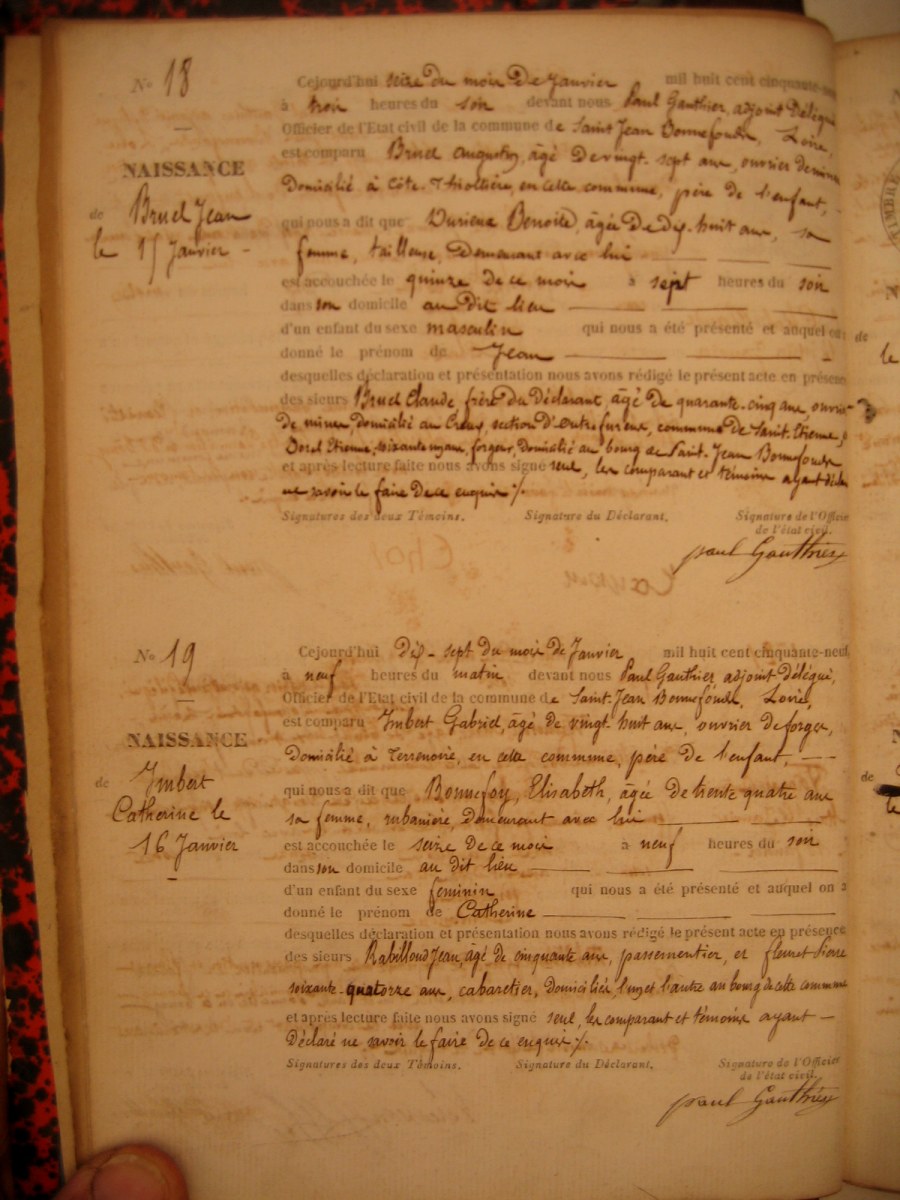 No 18
NAISSANCE
de Bruel Jean
le 15 Janvier
Cejourd'hui seize du mois de Janvier mil huit cent cinquante-neuf
à trois heures du soir devant nous Paul Gauthier, adjoint Délégué
Officier de l'Etat civil de la commune de Saint Jean Bonnefonds, Loire,
est comparu Bruel Augustin, âgé de vingt-sept ans, ouvrier de mines
Domicilié à Côte-Thiollière, en cette commune, père de l'enfant,
qui nous a dit que Durieux Benoite, âgée De dix-huit ans, sa
femme, tailleuse, Demeurant avec lui
est accouchée le quinze de ce mois à sept heures du soir
dans son domicile au Dit lieu
d'un enfant du sexe masculin qui nous a été présenté et auquel on a
donné le prénom de Jean
desquelles déclaration et présentation nous avons rédigé le présent acte en présence
des sieurs Bruel Claude, frère du Déclarant, âgé De quarante-cinq ans, ouvrier
de mines domicilié au Creux, section d'Outrefurens, commune De Saint-Etienne, &
Dorel Etienne, soixante un ans, forgeur, Domicilié au bourg de Saint-Jean Bonnefonds
et après lecture faite nous avons signé seul, les comparant et témoins ayant déclaré
ne savoir le faire De ce enquis ./.
Signatures des deux Témoins. Signature du Déclarant. Signature de l'Officier
de l'état civil.
paul Gauthier
No 19
NAISSANCE
de Imbert
Catherine le
16 Janvier
Cejourd'hui dix-sept du mois de Janvier mil huit cent cinquante-neuf
à neuf heures du matin, devant nous Paul Gauthier adjoint Délégué,
Officier de l'Etat civil de la commune de Saint-Jean Bonnefonds, Loire,
est comparu Imbert Gabriel, âgé de vingt-huit ans, ouvrier de forges,
Domicilié à Terrenoire, en cette commune, père De l'enfant,
qui nous a dit que Bonnefoy, Elisabeth, agée de trente quatre ans
sa femme, rubanière, demeurant avec lui
est accouchée le seize De ce mois à neuf heures du soir
dans son domicile au dit lieu
d'un enfant du sexe feminin qui nous a été présenté et auquel on a
donné le prénom de Catherine
desquelles déclaration et présentation nous avons rédigé le présent acte en présence
des sieurs Rabilloud Jean, âgé de cinquante ans, passementier, et fleuret Pierre
soixante-quatorze ans, cabaretier, Domiciliés l'un et l'autre au bourg de cette commune
et après lecture faite nous avons signé seul, les comparant et témoins ayant
Déclaré ne savoir le faire De ce enquis ./.
Signatures des deux Témoins. Signature du Déclarant. Signature de l'Officier
de l'état civil.
paul Gauthier
TIMBRE
de
le
de
le